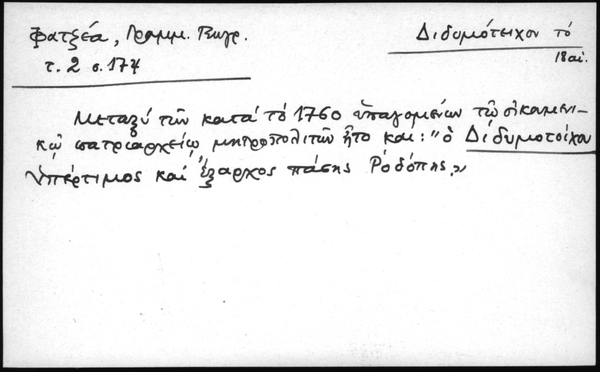 Φατζέα, Γραμμ. Γεωγρ.
τ. 2 σ. 174
Διδυμότειχον τό
18 αἰ.
Μεταξύ τῶν κατά τό 1760 ὑπαγομένων τῷ οἰκουμενι-
κῷ πατριαρχείῳ μητροπολιτῶν ἦτο και: "ὁ Διδυμοτοίχου
ὑπέρτιμος καί Ἔξαρχος πάσης Ῥοδόπης."